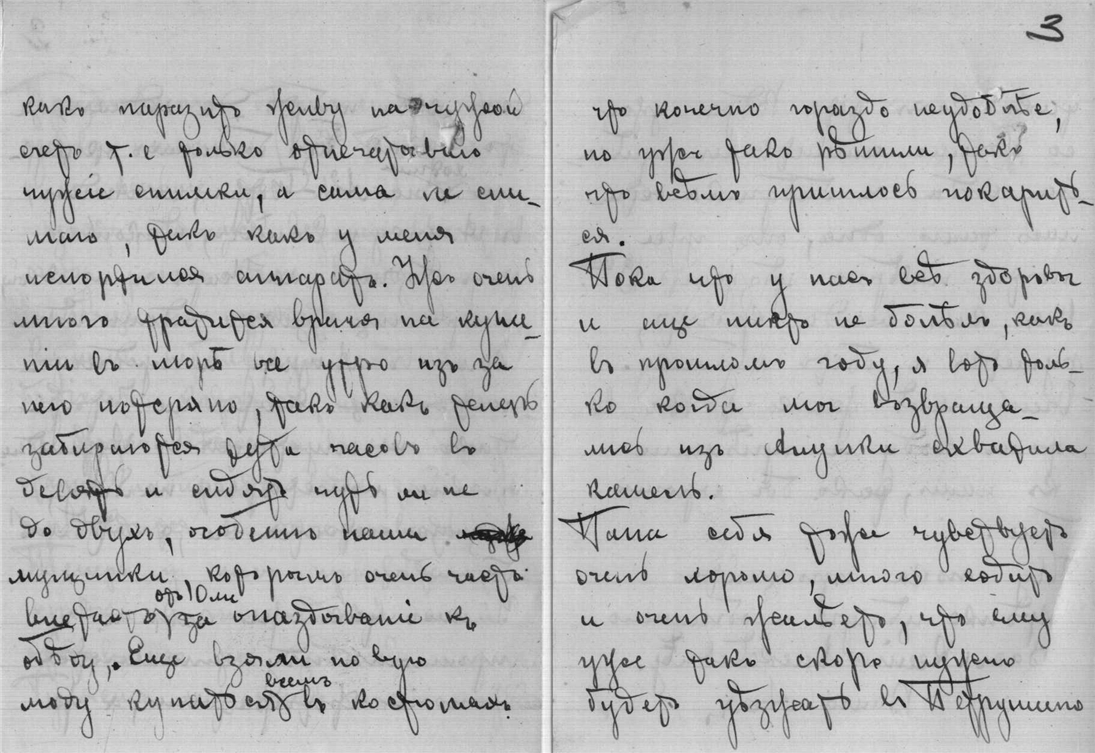 какъ паразитъ живу на чужой
счетъ т. е только отпечатываю
чужіе снимки, а сама не сни-
маю, такъ какъ у меня
испортился аппаратъ. Ужъ очень
много тратится время на купа-
ніи въ морѣ все утро изъ за
него потеряно, такъ какъ теперь
забираются туда часовъ въ
девять и сидятъ чуть ли не
до двухъ, особенно наши
мущинки, которымъ очень часто
влетаетъ отъ Юли за опаздываніе къ
обѣду. Еще взяли новую
моду купаться всѣмъ въ костюмахъ
3
что конечно гораздо неудобнѣе,
но ужъ такъ рѣшили, такъ
что всѣмъ пришлось покорить-
ся.
Пока что у насъ всѣ здоровы
и еще никто не болѣлъ, какъ
въ прошломъ году, я вотъ толь-
ко когда мы возвраща-
лись изъ Алупки схватила
кашель.
Папа себя тоже чувствуетъ
очень хорошо, много ходитъ
и очень жалѣетъ, что ему
уже такъ скоро нужно
будетъ уѣзжать въ Петрушино